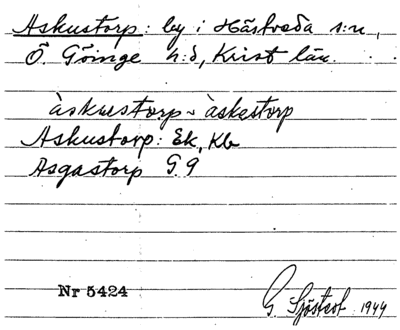 Askustorp: by i Hästveda s:n,
Ö. Göinge h:d, Krist län.
àskustorp ~ àskestorp
Askustorp: Ek, Kb
Asgastorp G 9
Nr 5424
G. Sjöstedt 1944